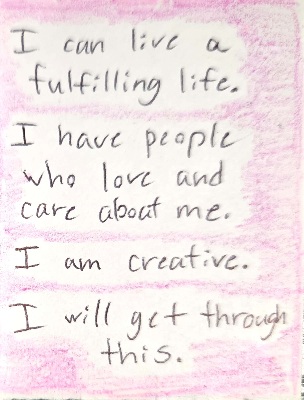 I can live a
fulfilling life.
I have people
who love and
care about me.
I am creative.
I will get through
this.